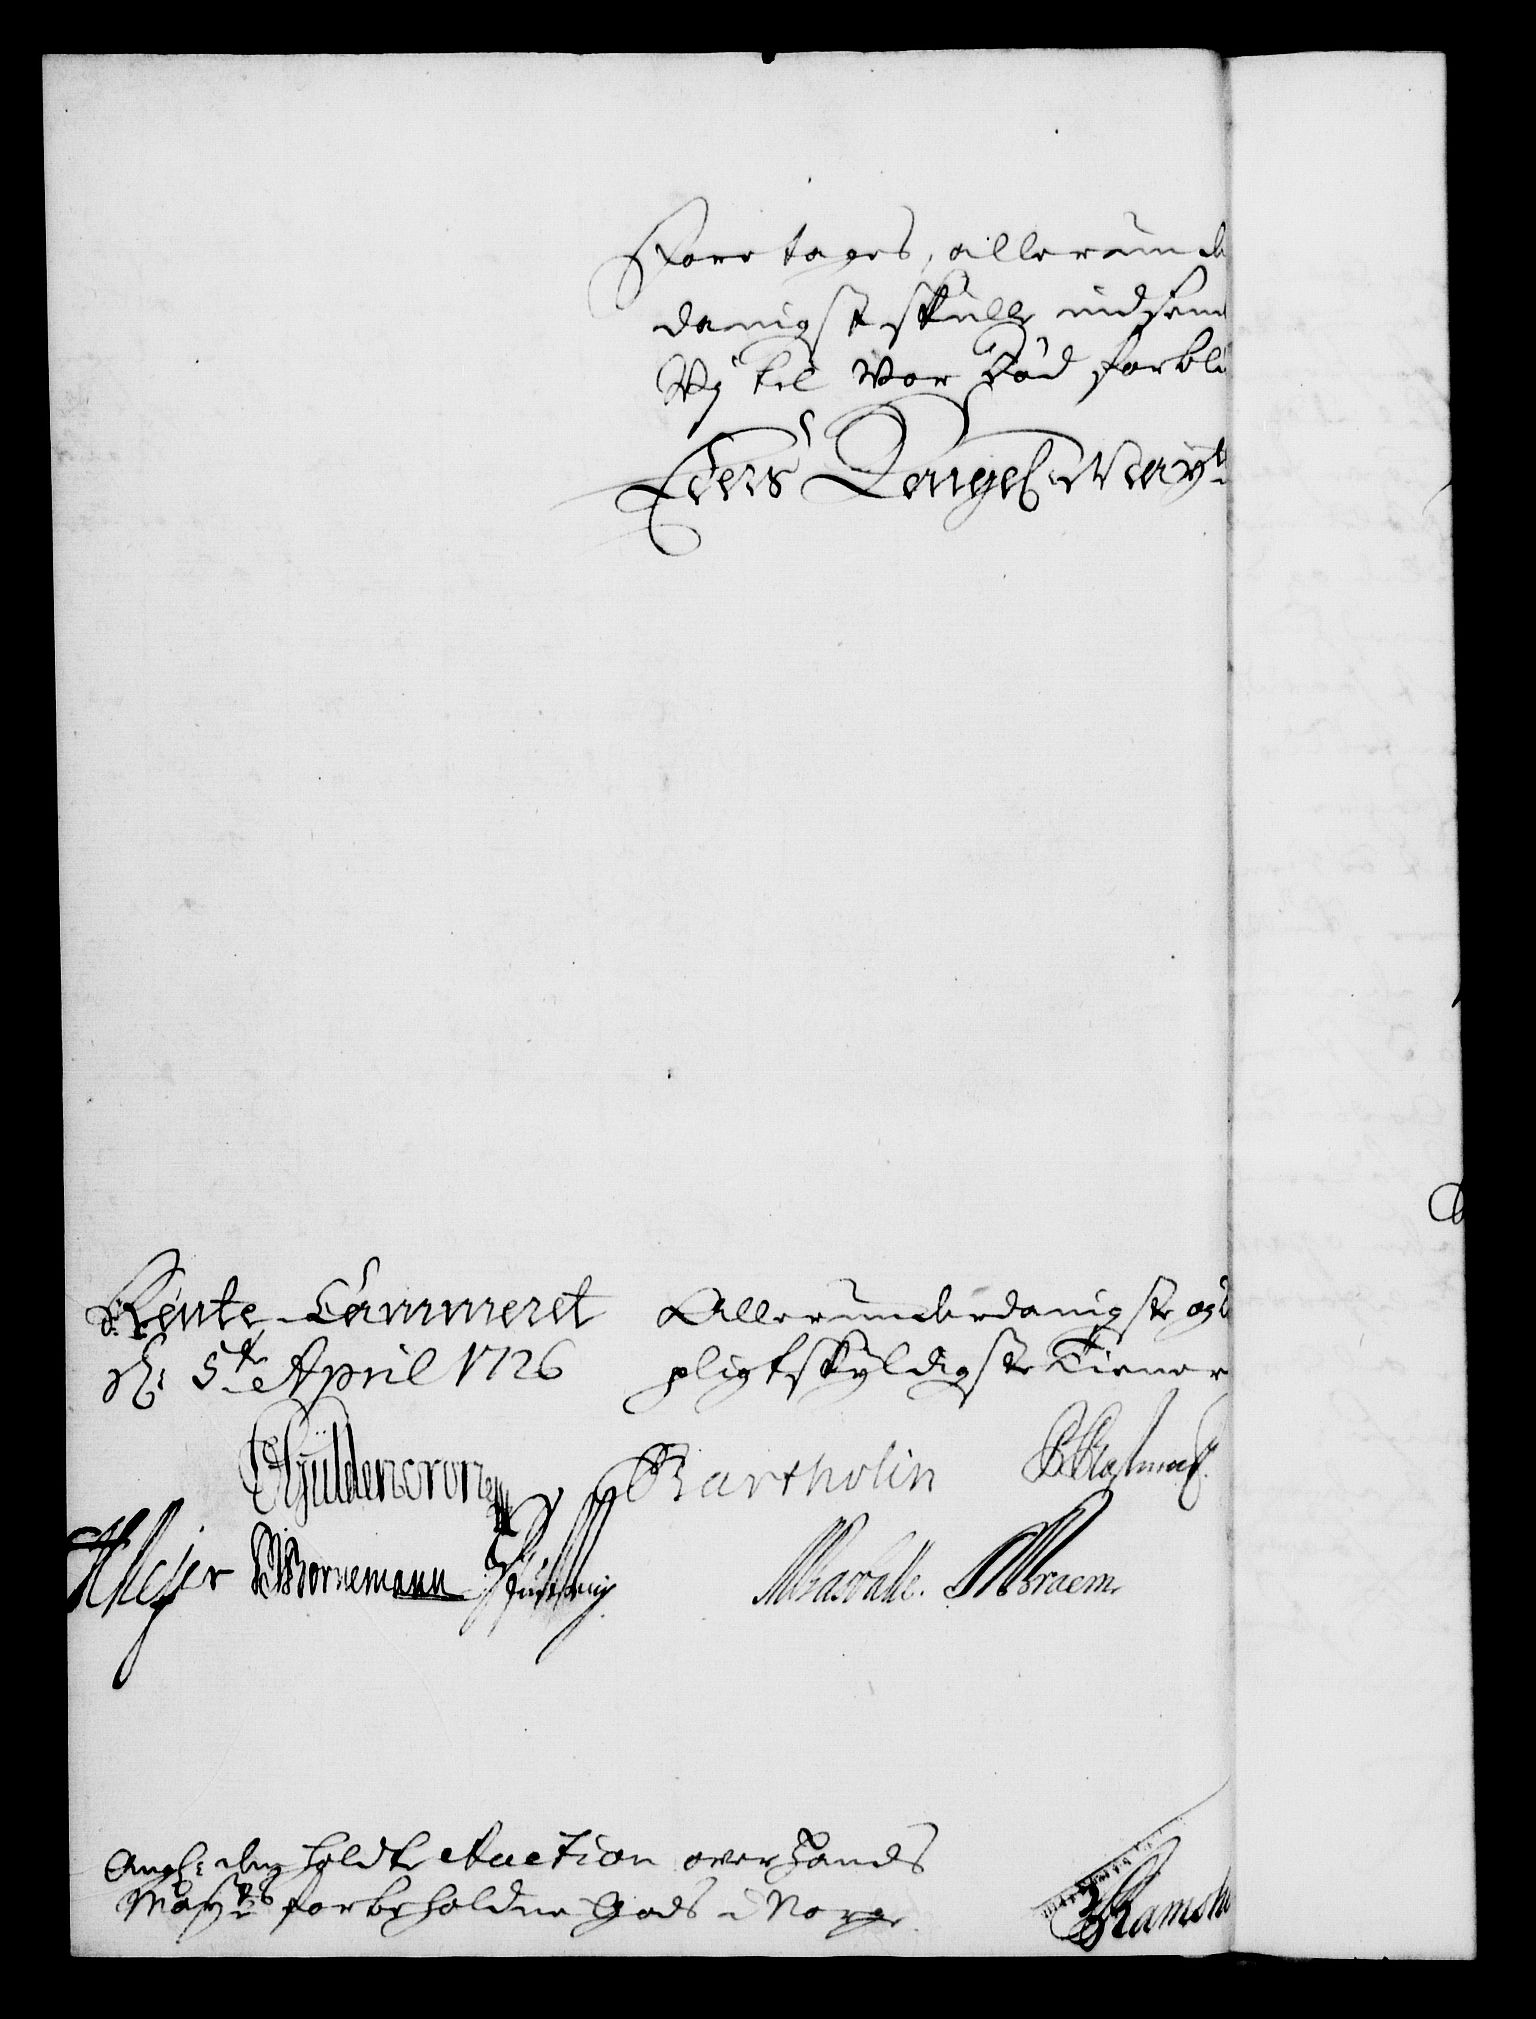 Foretages, allerunde
danigst skulle indsend
Vj til vor Död forbli
Eders Kongel: May:ts
Rente-Cammeret
d: 5te April 1726
Allerunderdanigste og
pligtskyldigste Tiener
Güldencrone
Bartholin
Meyer
Bornemann
Braem
Ang: den holdte Auction over Hands
May:ts forbeholdne Gods i Norge.
Ramsha